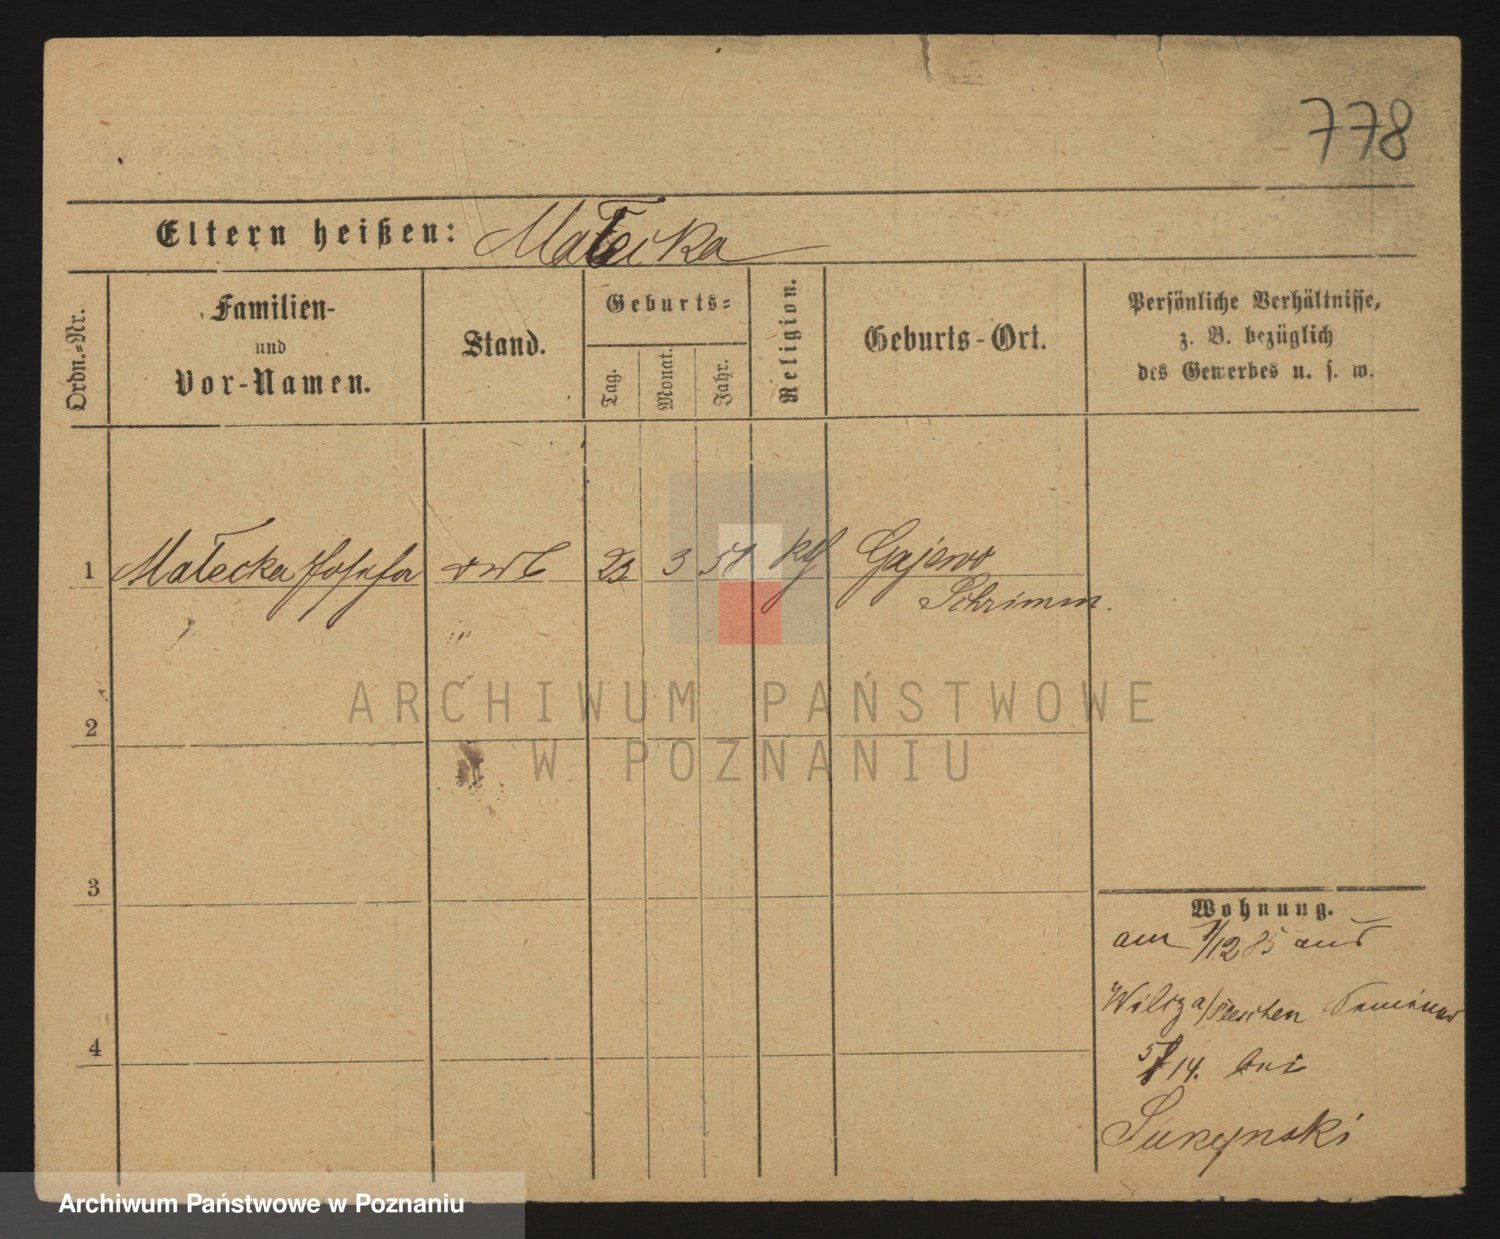 778
Eltern heißen: Małecka
Ordn.-Nr.
Familien-
und
Vor-Namen.
Stand.
Geburts-
Tag.
Monat.
Jahr.
Religion.
Geburts-Ort.
Persönliche Verhältnisse,
z. B. bezüglich
des Gewerbes u. s. w.
1 Małecka Josefa 23 3 kth Gajewo
Schrimm.
2
3
4
Wohnung.
am 1/12 85 aus
Wilcza/Pleschen
14. bei
ARCHIWUM PAŃSTWOWE
W POZNANIU
Archiwum Państwowe w Poznaniu